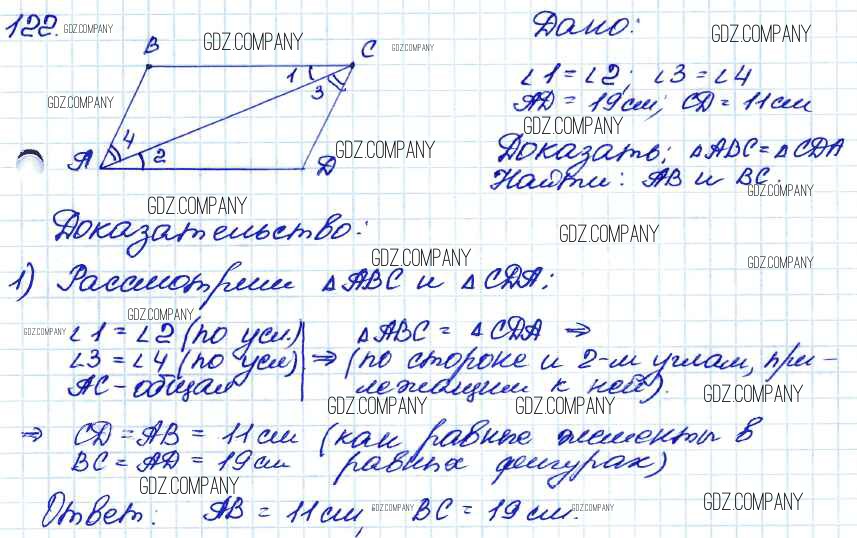 122. GDZ.COMPANY
Дано:
GDZ.COMPANY
GDZ.COMPANY
GDZ.COMPANY
B
C
1
3
∠1 = ∠2; ∠3 = ∠4
GDZ.COMPANY
AD = 19 см; CD = 11 см
GDZ.COMPANY
4
2
A
D
GDZ.COMPANY
Доказать: ΔABC = ΔCDA
Найти: AB и BC.
GDZ.COMPANY
GDZ.COMPANY
Доказательство:
GDZ.COMPANY
GDZ.COMPANY
GDZ.COMPANY
1) Рассмотрим ΔABC и ΔCDA:
GDZ.COMPANY
GDZ.COMPANY
∠1 = ∠2 (по усл.) ΔABC = ΔCDA ⇒
∠3 = ∠4 (по усл) ⇒ (по стороне и 2-м углам, при-
AC - общая лежащим к ней).
GDZ.COMPANY
GDZ.COMPANY
GDZ.COMPANY
⇒ CD = AB = 11 см (как равные элементы в
BC = AD = 19 см равных фигурах)
GDZ.COMPANY
Ответ: AB = 11 см, BC = 19 см.
GDZ.COMPANY
GDZ.COMPANY
GDZ.COMPANY